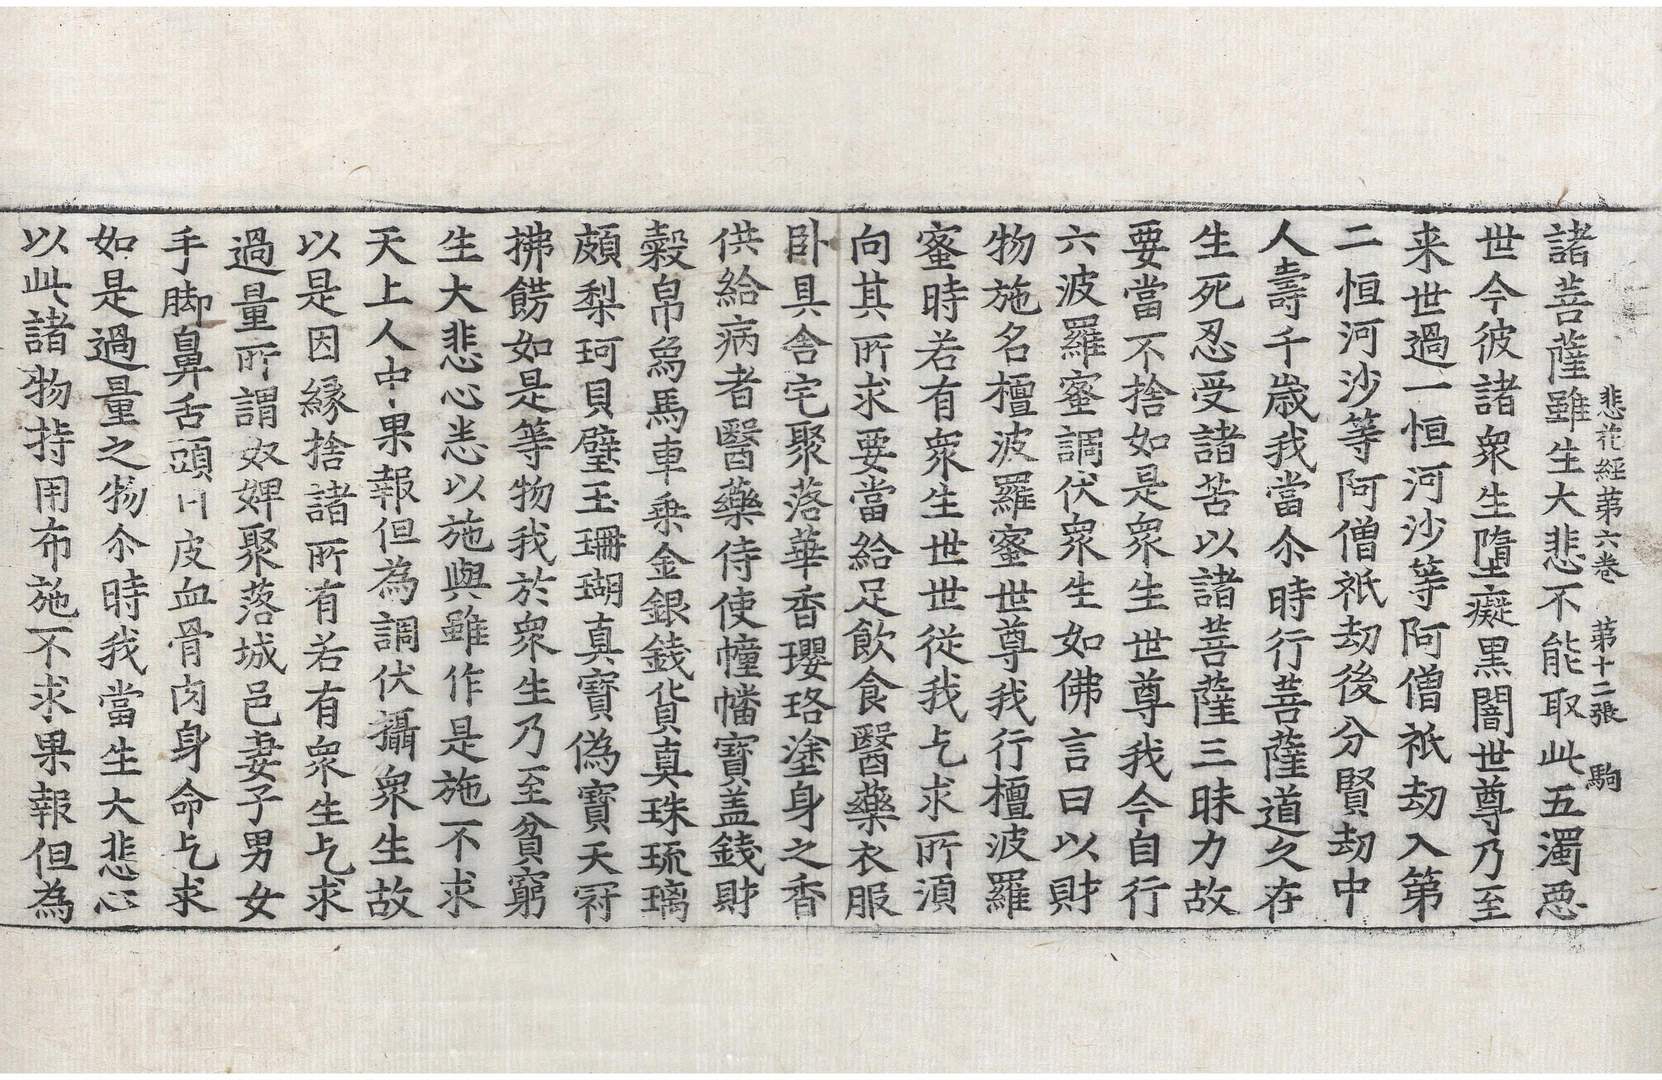 悲花經第六卷　第十二張　駒
諸菩薩雖生大悲不能取此五濁惡
世今彼諸衆生墮癡黒闇世尊乃至
来世過一恒河沙等阿僧祇劫入第
二恒河沙等阿僧祇劫後分賢劫中
人壽千歳我當尒時行菩薩道久在
生死忍受諸苦以諸菩薩三昧力故
要當不捨如是衆生世尊我今自行
六波羅蜜調伏衆生如佛言曰以財
物施名檀波羅蜜世尊我行檀波羅
蜜時若有衆生世世從我乞求所湏
向其所求要當給足飲食醫藥衣服
卧具舍宅聚落華香瓔珞塗身之香
供給病者醫藥侍使幢幡寶盖錢財
穀帛烏馬車乗金銀錢貨真珠琉璃
頗梨珂貝璧玉珊瑚真寶偽寶天冠
拂餝如是等物我於衆生乃至貧窮
生大悲心悉以施與雖作是施不求
天上人中果報但為調伏攝衆生故
以是因緣捨諸所有若有衆生乞求
過量所謂奴婢聚落城邑妻子男女
手脚鼻舌頭目皮血骨肉身命乞求
如是過量之物尒時我當生大悲心
以此諸物持用布施不求果報但為